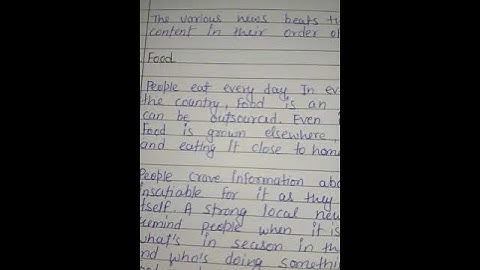 The various news beats
content in their order
Food
People eat every day In
the country, Food is an
can be outsourced. Even
Food is grown elsewhere,
and eating it close to home
People crave information
insatiable for it as they
itself. A strong local
remind people when it is
what's in season in
and who's doing